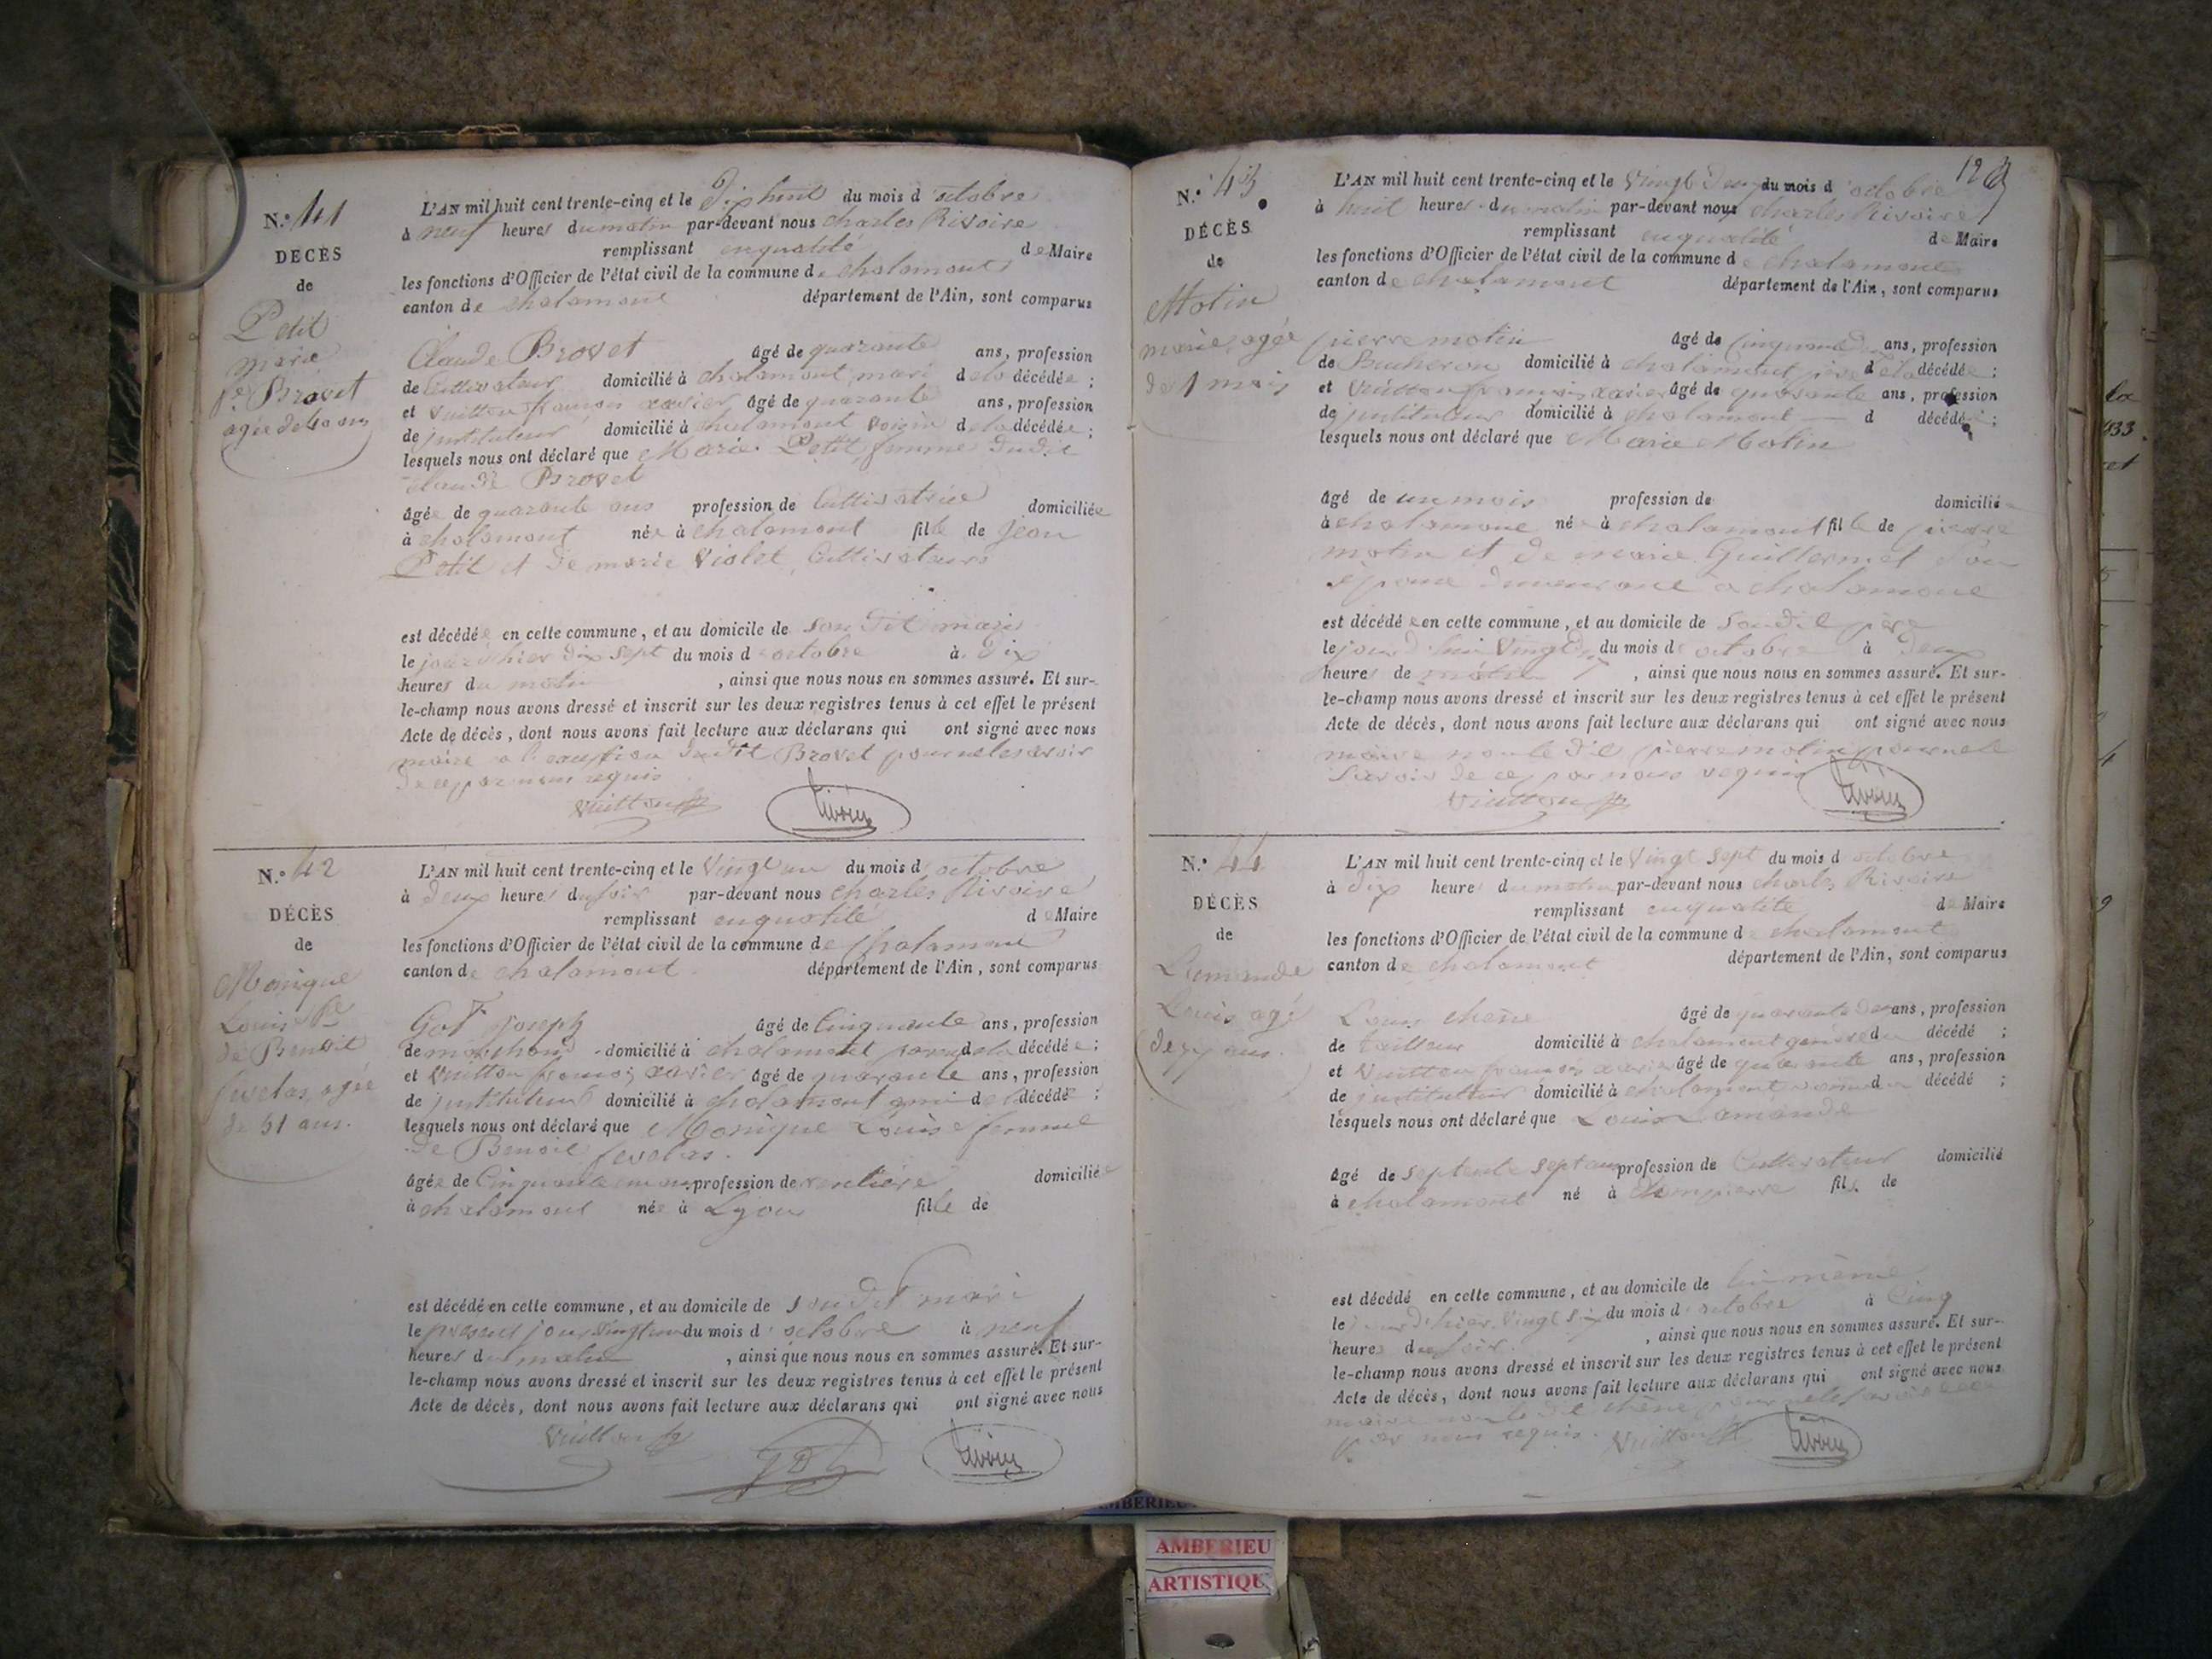 N.º 41
DÉCÈS
de
Petit
marie
fe Brovet
agée de 40 ans
L'AN mil huit cent trente-cinq et le dix huit du mois d'octobre
à neuf heures du matin par-devant nous charles Rivoire
remplissant en qualité de Maire
les fonctions d'Officier de l'état civil de la commune de chalamont
canton de chalamont département de l'Ain, sont comparus
Claude Brovet âgé de quarante ans, profession
de Cultivateur domicilié à chalamont mari de la décédée ;
et Vuitton françois xavier âgé de quarante ans, profession
de jnstituteur domicilié à chalamont voisin de la décédée ;
lesquels nous ont déclaré que Marie Petit femme dudit
claude Brovet
âgée de quarante ans profession de Cultivatrice domiciliée
à chalamont née à chalamont fille de jean
Petit et de marie Violet, Cultivateurs
est décédée en cette commune, et au domicile de son dit mari
le jour d'hier dix sept du mois d'octobre à dix
heures du matin , ainsi que nous nous en sommes assuré. Et sur-
le-champ nous avons dressé et inscrit sur les deux registres tenus à cet effet le présent
Acte de décès, dont nous avons fait lecture aux déclarans qui ont signé avec nous
maire a l'exeption dudit Brovet pour ne le savoir
de ce par nous requis
Vuitton Rivoire
N.º 42
DÉCÈS
de
Monique
Louise fe
de Benoit
fevelas, agée
de 51 ans.
L'AN mil huit cent trente-cinq et le vingt un du mois d'octobre
à deux heures du soir par-devant nous charles Rivoire
remplissant en qualité de Maire
les fonctions d'Officier de l'état civil de la commune de chalamont
canton de chalamont département de l'Ain, sont comparus
Got joseph âgé de Cinquante ans, profession
de marchand domicilié à chalamont de la décédée ;
et Vuitton françois xavier âgé de quarante ans, profession
de jnstituteur domicilié à chalamont ami de la décédée ;
lesquels nous ont déclaré que Monique Louise femme
de Benoit fevelas.
âgée de Cinquante un ans profession de rentiere domiciliée
à chalamont née à Lyon fille de
est décédé en cette commune, et au domicile de son dit mari
le présent jour vingt un du mois d'octobre à neuf
heures du matin , ainsi que nous nous en sommes assuré. Et sur-
le-champ nous avons dressé et inscrit sur les deux registres tenus à cet effet le présent
Acte de décès, dont nous avons fait lecture aux déclarans qui ont signé avec nous
Vuitton Rivoire
N.º 43
DÉCÈS
de
Motin
marie, agée
de 1 mois
L'AN mil huit cent trente-cinq et le vingt deux du mois d'octobre
à huit heures du matin par-devant nous charles Rivoire
remplissant en qualité de Maire
les fonctions d'Officier de l'état civil de la commune de chalamont
canton de chalamont département de l'Ain, sont comparus
pierre motin âgé de Cinquante ans, profession
de Bucheron domicilié à chalamont père de la décédée ;
et Vuitton françois xavier âgé de quarante ans, profession
de jnstituteur domicilié à chalamont d décédée ;
lesquels nous ont déclaré que Marie Motin
âgé de un mois profession de domicilié
à chalamont née à chalamont fille de pierre
motin et de marie Guillermet son
épouse demeurant a chalamont
est décédée en cette commune, et au domicile de son dit père
le jour d'hui vingt deux du mois d'octobre à deux
heures de matin , ainsi que nous nous en sommes assuré. Et sur-
le-champ nous avons dressé et inscrit sur les deux registres tenus à cet effet le présent
Acte de décès, dont nous avons fait lecture aux déclarans qui ont signé avec nous
maire non le dit pierre motin pour ne le
savoir de ce par nous requis
Vuitton Rivoire
N.º 44
DÉCÈS
de
Lamande
Louis agé
de 77 ans.
L'AN mil huit cent trente-cinq et le vingt sept du mois d'octobre
à dix heures du matin par-devant nous charles Rivoire
remplissant en qualité de Maire
les fonctions d'Officier de l'état civil de la commune de chalamont
canton de chalamont département de l'Ain, sont comparus
Louis chêne âgé de quarante deux ans, profession
de tailleur domicilié à chalamont gendre du décédé ;
et Vuitton françois xavier âgé de quarante ans, profession
de jnstituteur domicilié à chalamont du décédé ;
lesquels nous ont déclaré que Louis Lamande
âgé de septante sept ans profession de Cultivateur domicilié
à chalamont né à Dompierre fils de
est décédé en cette commune, et au domicile de lui même
le jour d'hier vingt six du mois d'octobre à Cinq
heures du soir. , ainsi que nous nous en sommes assuré. Et sur-
le-champ nous avons dressé et inscrit sur les deux registres tenus à cet effet le présent
Acte de décès, dont nous avons fait lecture aux déclarans qui ont signé avec nous
maire non le dit chêne pour ne le savoir de ce
par nous requis. Vuitton Rivoire
AMBERIEU
ARTISTIQUE